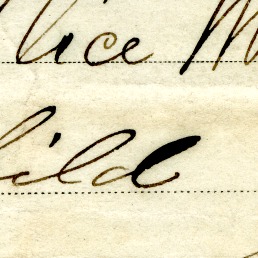 lice M
ild